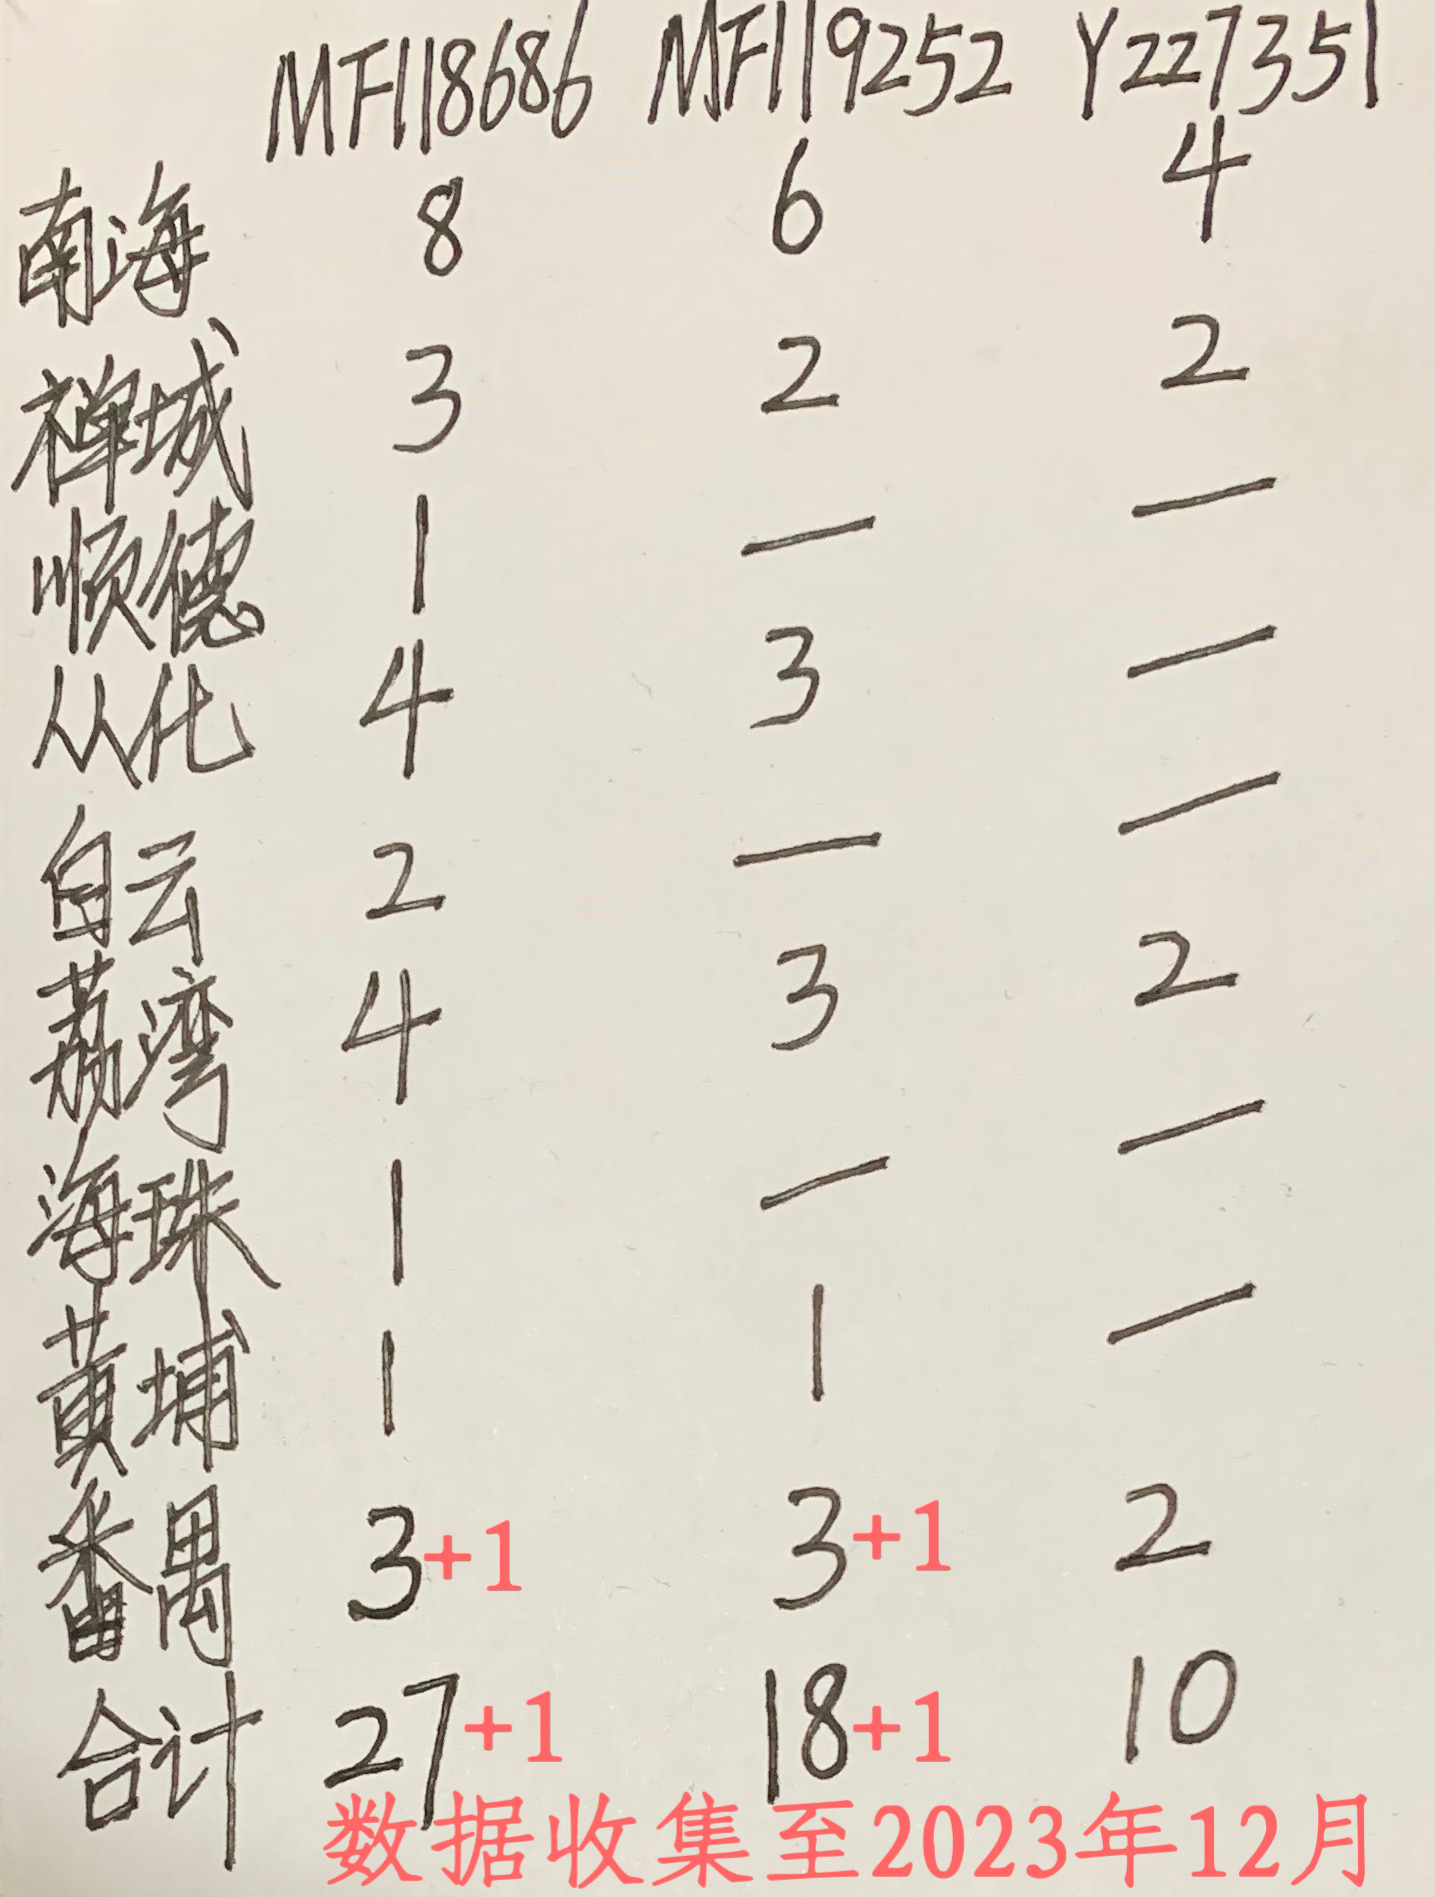 MF118686 MF119252 Y227351
南海 8 6 4
禅城 3 2 2
顺德 1 — —
从化 4 3 —
白云 2 — —
荔湾 4 3 2
海珠 1 — —
黄埔 1 1 —
番禺 3+1 3+1 2
合计 27+1 18+1 10
数据收集至2023年12月